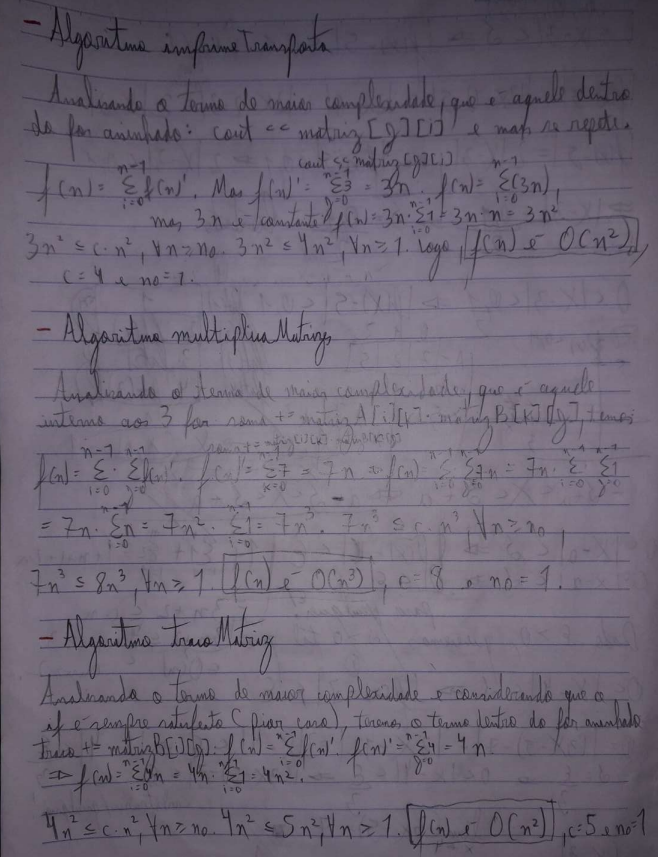 - Algoritmo imprimeTransposta
Analisando o termo de maior complexidade, que é aquele dentro
do for aninhado: cout << matriz[j][i] e mas se repete.
cout << matriz[j][i]
f(n) = Σ_{i=0}^{n-1} f(n)'. Mas f(n)' = Σ_{j=0}^{n-1} 3 = 3n. f(n) = Σ_{i=0}^{n-1} (3n),
mas 3n é constante f(n) = 3n · Σ_{i=0}^{n-1} 1 = 3n · n = 3n²
3n² ≤ c·n², ∀n ≥ n0. 3n² ≤ 4n², ∀n ≥ 1. Logo, f(n) é O(n²),
c = 4 e n0 = 1.
- Algoritmo multiplicaMatriz
Analisando o termo de maior complexidade, que é aquele
interno aos 3 for soma += matrizA[i][k] · matrizB[k][j], temos
f(n) = Σ_{i=0}^{n-1} · Σ_{j=0}^{n-1} f(n)'. f(n)' = Σ_{k=0}^{n-1} 7 = 7n ⇒ f(n) = Σ_{i=0}^{n-1} Σ_{j=0}^{n-1} 7n = 7n · Σ_{i=0}^{n-1} · Σ_{j=0}^{n-1} 1
= 7n · Σ_{i=0}^{n-1} n = 7n² · Σ_{i=0}^{n-1} 1 = 7n³. 7n³ ≤ c·n³, ∀n ≥ n0,
7n³ ≤ 8n³, ∀n ≥ 1. f(n) é O(n³), c = 8 e n0 = 1.
- Algoritmo tracoMatriz
Analisando o termo de maior complexidade e considerando que o
if é sempre satisfeito (pior caso), teremos o termo dentro do for aninhado
traco += matrizB[i][j]. f(n) = Σ_{i=0}^{n-1} f(n)'. f(n)' = Σ_{j=0}^{n-1} 4 = 4n
⇒ f(n) = Σ_{i=0}^{n-1} 4n = 4n · Σ_{i=0}^{n-1} 1 = 4n².
4n² ≤ c·n², ∀n ≥ n0. 4n² ≤ 5n², ∀n ≥ 1. f(n) é O(n²), c=5 e n0=1